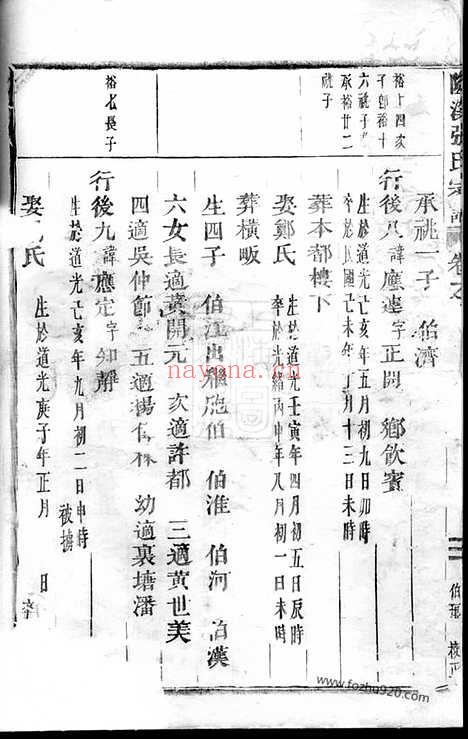 張氏宗譜
伯 校正
裕廿四次
承裕廿二
祧子
裕 長子
承祧一子 伯濟
行後八諱應運字正開 鄉飲賓
生於道光己亥年五月初九日卯時
卒於民國己未年 月十三日未時
葬本都樓下
娶鄭氏
生於道光壬寅年四月初五日辰時
卒於光緒丙申年八月初一日未時
葬橫畈
生四子 伯江出繼 伯 伯淮 伯河 伯漢
六女長適黃開元 次適許都 三適黃世美
四適吳仲節 五適楊 幼適裏塘潘
行後九諱應定字 靜
生於道光己亥年九月初二日申時
被擄
娶 氏
生於道光庚子年正月 日
卒
nayuna.cn
www.fozhu920.com